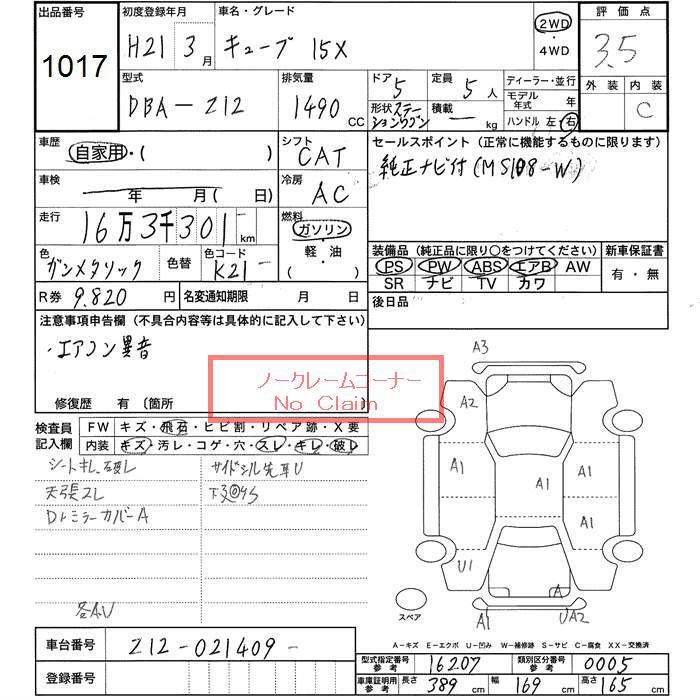 出品番号
1017
初度登録年月
H21 3月
車名・グレード
キューブ 15X
2WD
・
4WD
評価点
3.5
外装 内装
C
型式
DBA-Z12
排気量
1490 CC
ドア
5
形状 ステーションワゴン
定員
5 人
積載
— kg
ディーラー・並行
モデル年式 年
ハンドル 左・右
車歴
自家用・( )
シフト
CAT
セールスポイント (正常に機能するものに限ります)
純正ナビ付(MS108-W)
車検
年 月(日)
冷房
AC
走行
16万3千301 km
燃料
ガソリン
・
軽・油
( )
色
ガンメタリック
色替
色コード
K21-
装備品 (純正品に限り○をつけてください)
PS PW ABS エアB AW
SR ナビ TV カワ
新車保証書
有・無
R券 9.820 円
名変通知期限 月 日
後日品
注意事項申告欄 (不具合内容等は具体的に記入して下さい)
・エアコン異音
ノークレームコーナー
No Claim
修復歴 有 (箇所
検査員
記入欄
FW キズ・飛石・ヒビ割・リペア跡・X要
内装 キズ・汚レ・コゲ・穴・スレ・キレ・破レ
シートキレ、破レ
天張スレ
Dドミラーカバー A
各A.U
サイドシル先耳U
A3
A2
A1
A1
A1
A1
U1
A
A1
UA2
スペア
A-キズ E-エクボ U-凹み W-補修跡 S-サビ C-腐食 XX-交換済
車台番号 Z12-021409-
登録番号
型式指定番号
参考
16207
類別区分番号
参考
0005
車庫証明用
参考
長さ 389 cm 幅 169 cm 高さ 165 cm